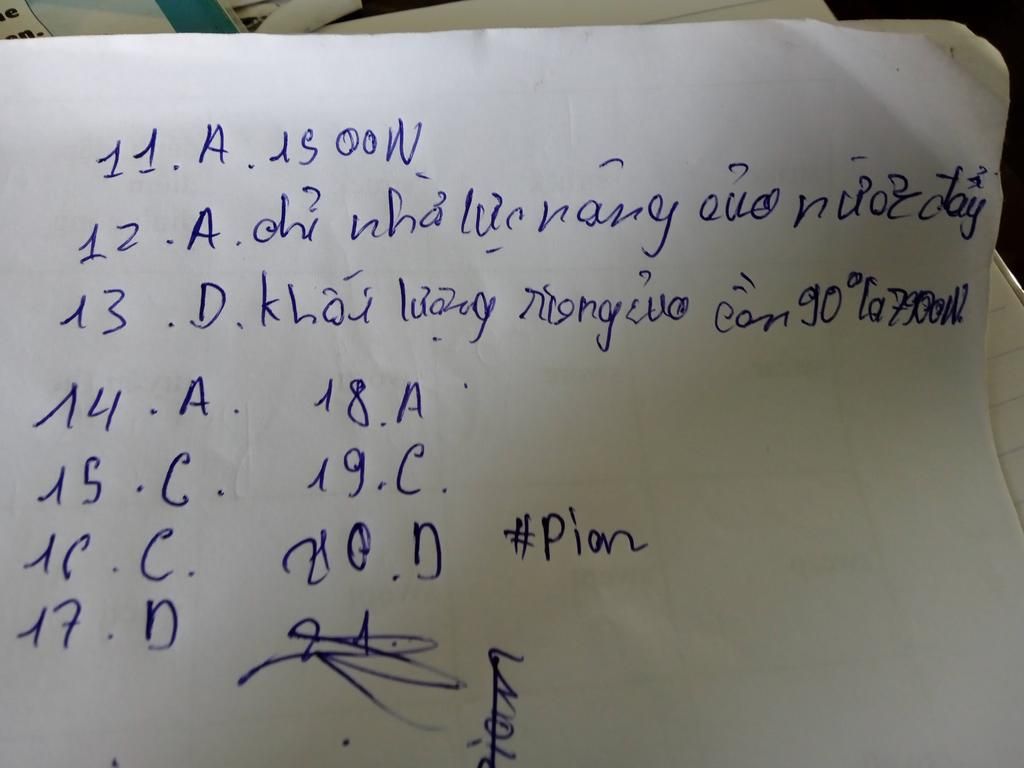 11. A. 1500N
12. A. chỉ nhờ lực nâng của nước đẩy
13. D. khối lượng riêng của cồn 90° là 7900N
14. A. 18. A
15. C. 19. C.
16. C. 20. D #Pion
17. D 21.